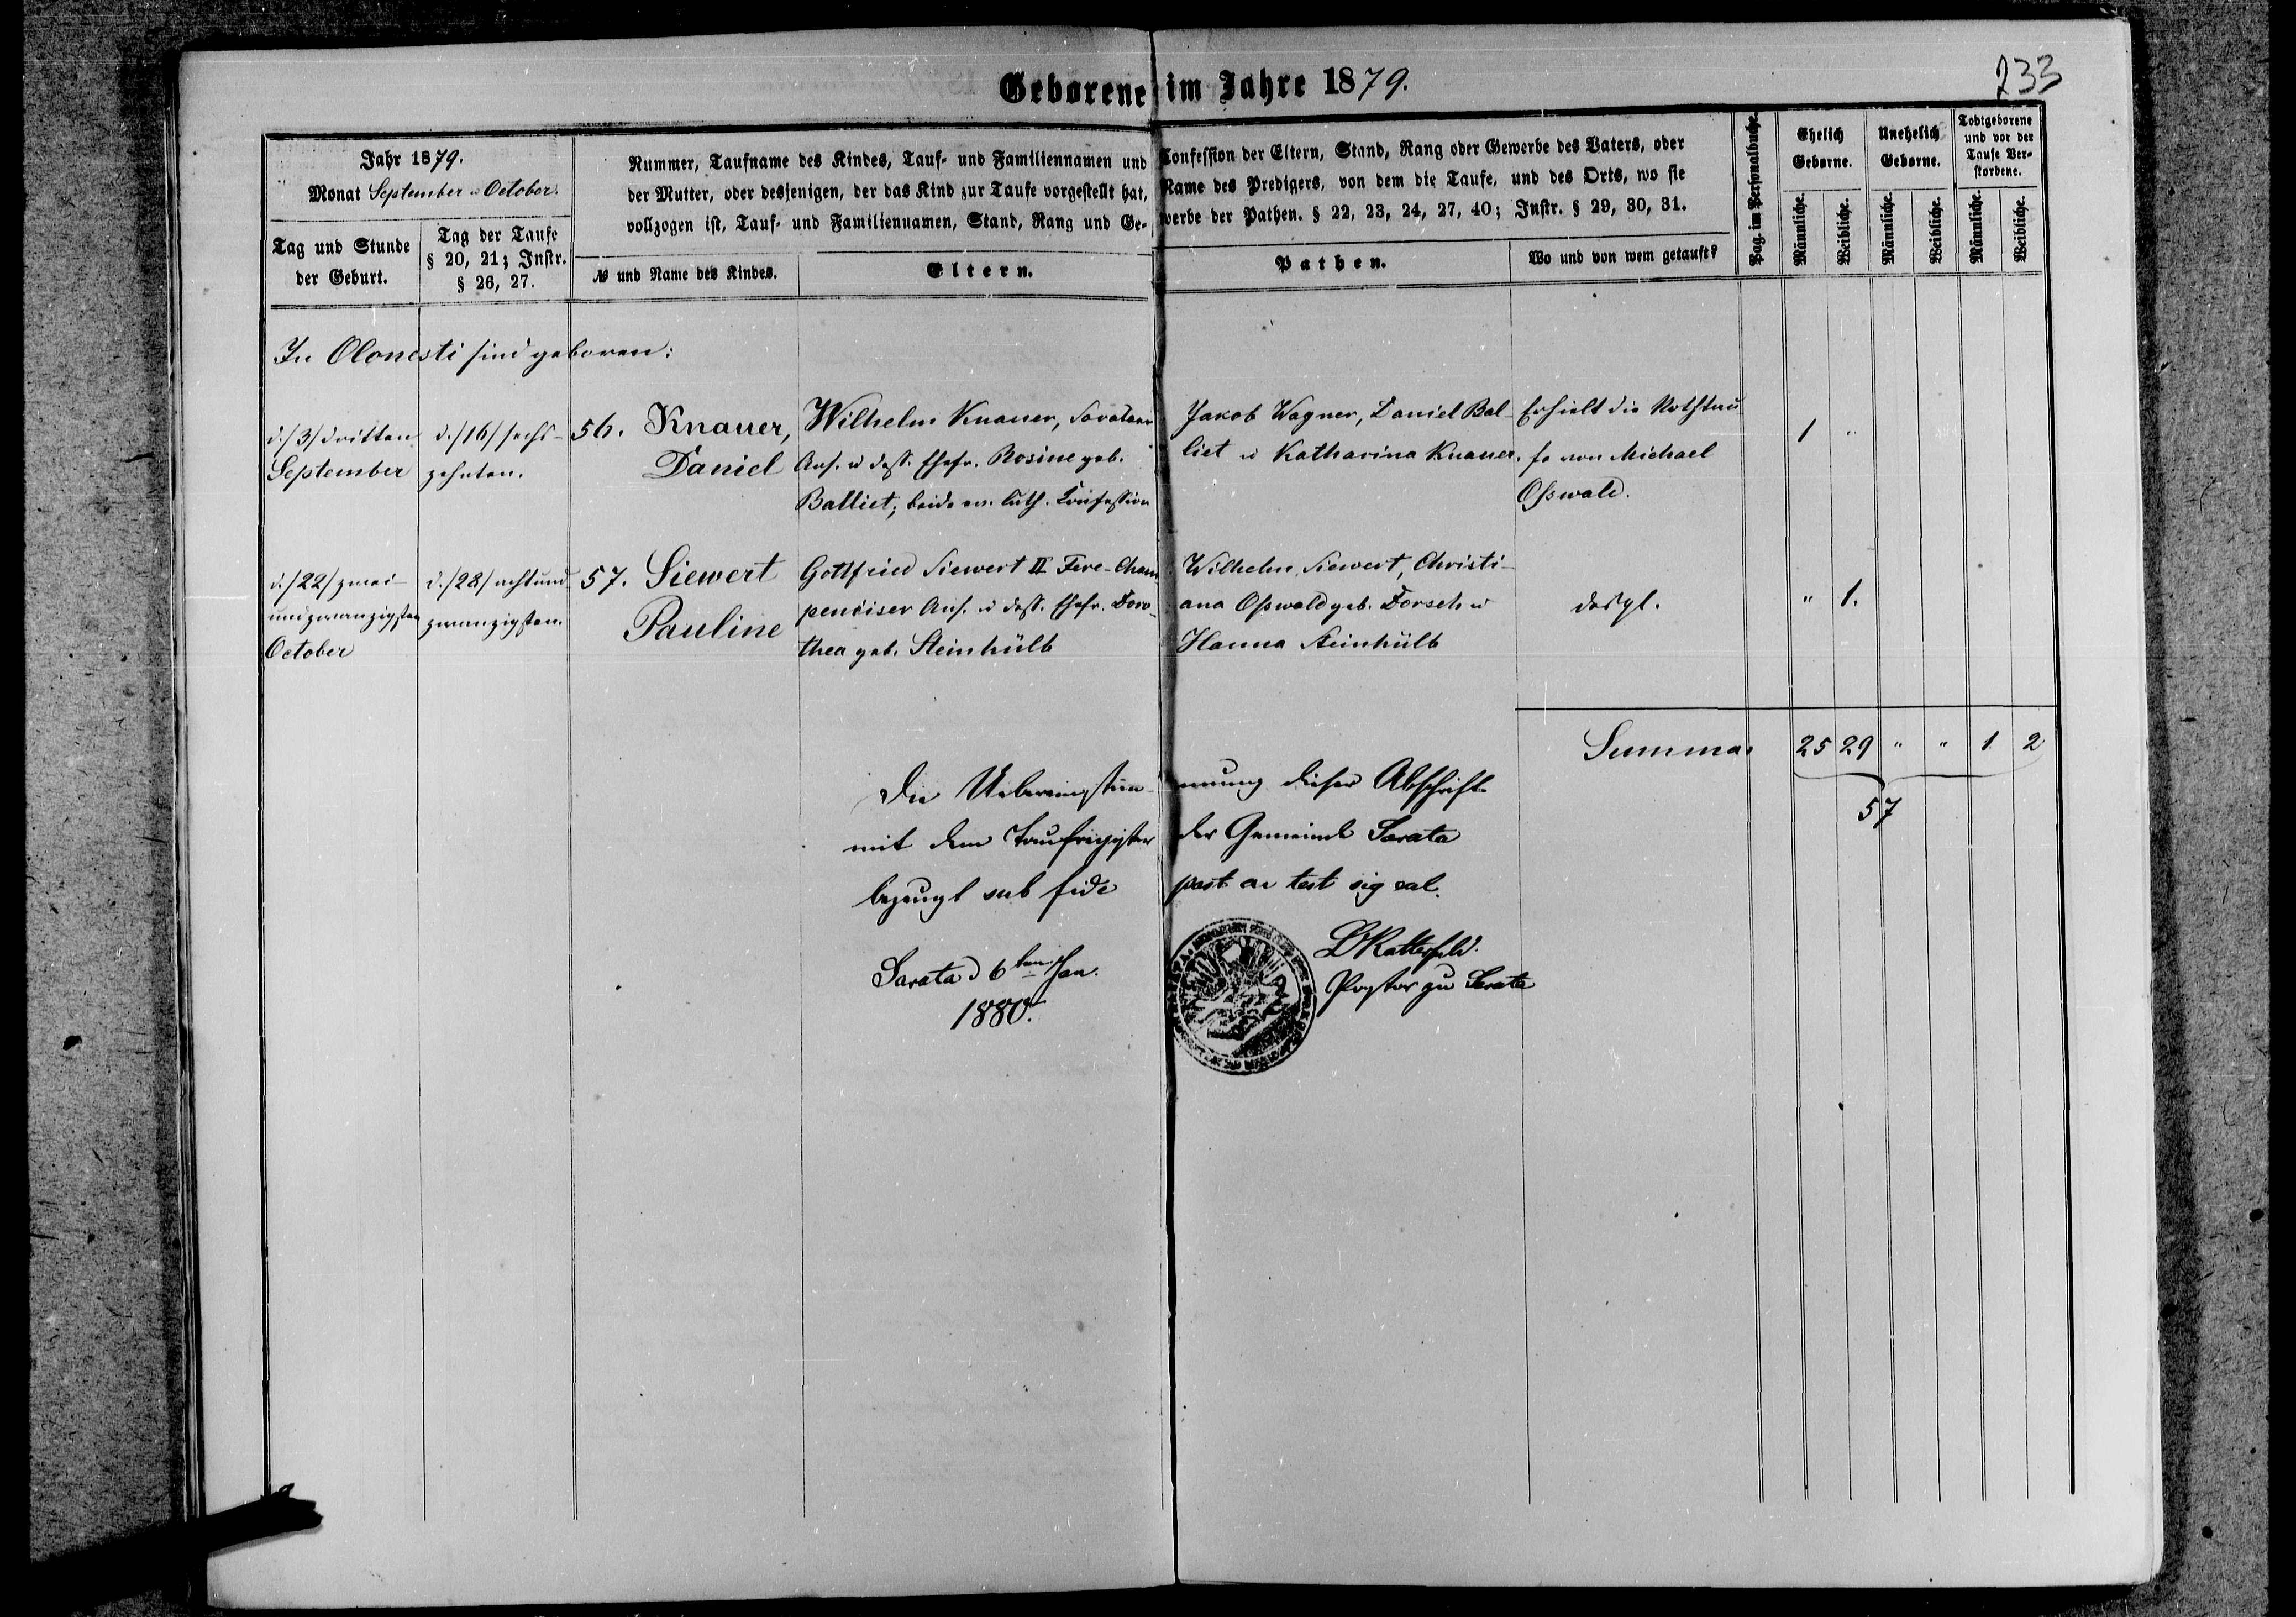 233
Geborene im Jahre 1879.
Jahr 1879.
Monat September u October.
Tag und Stunde der Geburt.
Tag der Taufe § 20, 21; Instr. § 26, 27.
Nummer, Taufname des Kindes, Tauf- und Familiennamen und Confession der Eltern, Stand, Rang oder Gewerbe des Vaters, oder
der Mutter, oder desjenigen, der das Kind zur Taufe vorgestellt hat, Name des Predigers, von dem die Taufe, und des Orts, wo sie
vollzogen ist, Tauf- und Familiennamen, Stand, Rang und Gewerbe der Pathen. § 22, 23, 24, 27, 40; Instr. § 29, 30, 31.
№ und Name des Kindes.
Eltern.
Pathen.
Wo und von wem getauft?
Pag. im Personalbuche.
Ehelich Geborne.
Unehelich Geborne.
Todtgeborene und vor der Taufe Verstorbene.
Männliche.
Weibliche.
Männliche.
Weibliche.
Männliche.
Weibliche.
In Olonesti sind geboren:
d./3/ dritten
September
d./16/ sechs-
zehnten.
56. Knauer,
Daniel
Wilhelm Knauer, Sarataer
Ans. u dess. Ehefr. Rosine geb.
Balliet; beide ev. luth. Confession
Jakob Wagner, Daniel Bal-
liet u Katharina Knauer.
Erhielt die Nothtau
fe von Michael
Osswald.
1 "
d./22/ zwei-
undzwanzigsten
October
d./28/ achtund
zwanzigsten.
57. Siewert
Pauline
Gottfried Siewert II Fere-Cham
penoiser Ans. u dess. Ehefr. Doro-
thea geb. Steinhülb
Wilhelm Siewert, Christi-
ana Osswald geb. Dorsch u
Hanna Steinhülb
desgl.
" 1.
Summa 25 29 " " 1 2
57
Die Uebereinstim-mung dieser Abschrift
mit dem Taufregister der Gemeinde Sarata
bezeugt sub fide past. ac test sig sal.
Sarata d 6ten Jan.
1880.
L Katterfeld.
Pastor zu Sarata